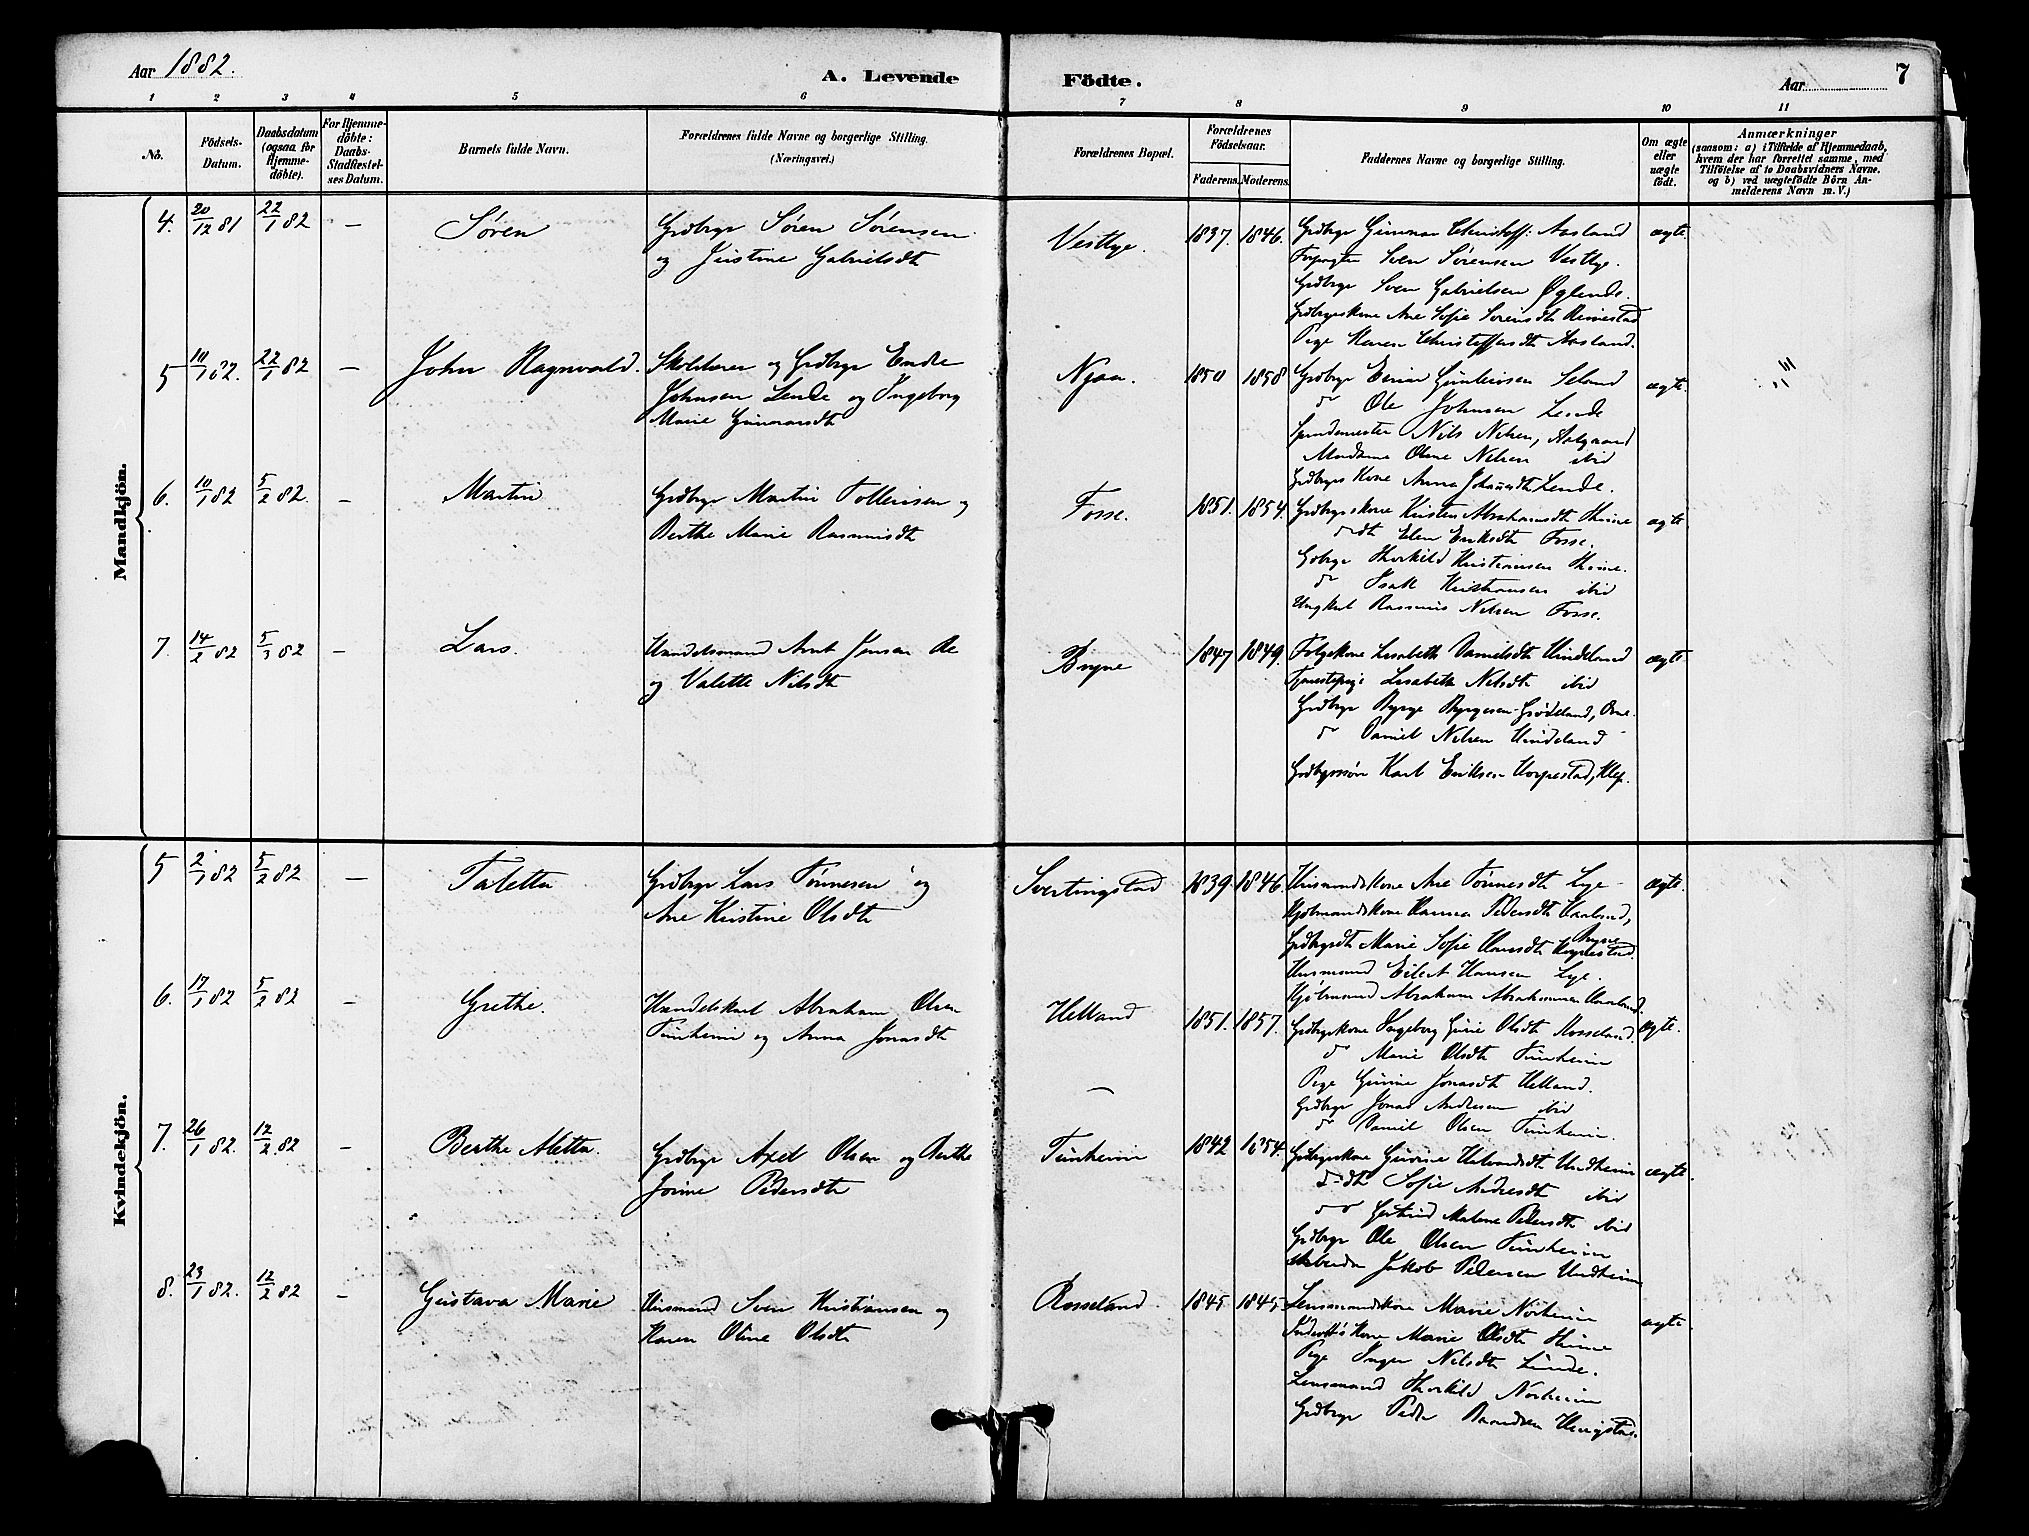 Aar 1882.
A. Levende Födte.
Aar
7
1 2 3 4 5 6 7 8 9 10 11
No.
Födsels-Datum.
Daabsdatum (ogsaa for Hjemme-döbte).
For Hjemme-döbte: Daabs-Stadfæstel-ses Datum.
Barnets fulde Navn.
Forældrenes fulde Navne og borgerlige Stilling.
(Næringsvei.)
Forældrenes Bopæl.
Forældrenes Födselsaar.
Faderens. Moderens.
Faddernes Navne og borgerlige Stilling.
Om ægte eller uægte födt.
Anmærkninger
(saasom: a) i Tilfælde af Hjemmedaab,
hvem der har forrettet samme, med
Tilföielse af to Daabsvidners Navne,
og b) ved uægtefödte Börn An-
melderens Navn m. V.)
Mandkjön.
4. 20/12 81 22/1 82 — Søren
Grdbrgr Søren Sørensen
og Justine Gabrielsdt
Vestlye. 1837. 1846.
Grdbrgr Gunnar Christoff: Aasland
Forpagter Sven Sørensen Vestlye.
Grdbrgr Sven Gabrielsen Øglend.
Grdbrgeskone Ane Sofie Sørensdt Reimestad
Pige Karen Christoffersdt Aasland.
ægte.
5 10/1 82. 22/1 82 — John Ragnvald.
Skolelærer og Grdbrgr Endre
Johnsen Lende og Ingeborg
Marie Gunnarsdt
Njaa. 1850 1858
Grdbrgr Einar Gunleiksen Seland
do Ole Johnsen Lende
Spindemester Nils Nilsen, Aalgaard
Madame Oline Nilsen ibid
Grdbrgers Kone Anna Johannsdt Lende.
ægte.
6. 10/1 82 5/2 82. — Martin
Grdbrgr Martin Tollevsen og
Berthe Marie Rasmusdt
Fosse. 1851. 1854.
Grdbrgrskone Kirsten Abrahamsdt Thime
do dt Elen Eriksdt Fosse.
Gdbrgr Thorkild Kristiansen Thime.
do Isak Kristiansen ibid
Ungkarl Rasmus Nilsen Fosse.
ægte
7. 14/2 82 5/3 82 — Lars.
Handelsmand Arnt Jonsen Re
og Valette Nilsdt
Bryne 1847 1849.
Folgekone Lisabeth Danielsdt Hindeland
Tjenestepige Lisabeth Nilsdt ibid
Grdbrgr Byrge Byrgesen Grødeland,
do Daniel Nilsen Hindeland
Grdbrgssøn Karl Eriksen Horpestad, Klep.
ægte
Kvindekjön.
5 2/1 82 5/2 82 — Taletta
Grdbrgr Lars Tønnesen og
Ane Kristine Olsdt
Svertingstad 1839. 1846.
Husmandskone Ane Tønnesdt Lye
Hjølmandskone Hanna Pedersdt Haaland,
Bryne
Grdbrgrdt Marie Sofie Hansdt
Husmand Eilert Hansen Lye.
Hjølmand Abraham Abrahamsen Haaland.
ægte.
6. 17/1 82 5/2 82 — Grethe.
Handelskarl Abraham Olsen
Tunheim og Anna Jonasdt
Helland 1851. 1857.
Grdbrgrkone Ingeborg Gurie Olsdt Rosseland.
do Marie Olsdt Tunheim
Pige Gurine Jonasdt Helland.
Grdbrgr Jonas Andresen ibid
do Daniel Olsen Tunheim.
ægte.
7. 26/1 82. 12/2 82 — Berthe Aletta.
Grdbrgr Axel Olsen og Berthe
Jorine Pedersdt
Tunheim 1842 1854.
Grdbrgrskone Gurine Undheim
do dt Sofie Andresdt ibid
do do Gertrud Malene Pedersdt ibid
Grdbrgr Ole Olsen Tunheim
Arbeider Jakob Pedersen Undheim
ægte.
8. 23/1 82. 12/2 82 — Gustava Marie
Husmand Sven Kristiansen og
Karen Oline Olsdt
Rosseland. 1845 1845
Lensmandskone Marie Norheim
Kone Marie Olsdt Thime
Pige Inger Nilsdt Lende.
Lensmand Thorkild Norheim
Grdbrgr Peder
ægte.